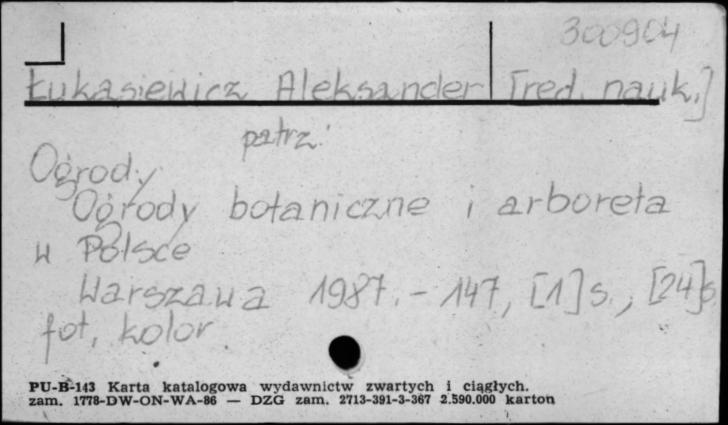 300904
Łukasiewicz Aleksander [red. nauk.]
patrz:
Ogrody
Ogrody botaniczne i arboreta
w Polsce
Warszawa 1987. - 147, [1] s., [24] s.
fot. kolor.
PU-B-143 Karta katalogowa wydawnictw zwartych i ciągłych.
zam. 1778-DW-ON-WA-86 — DZG zam. 2713-391-3-367 2.590.000 karton